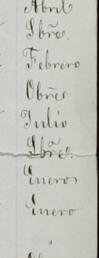 Abril
Sbre
Febrero
Obre
Julio
Sbre
Enero
Enero